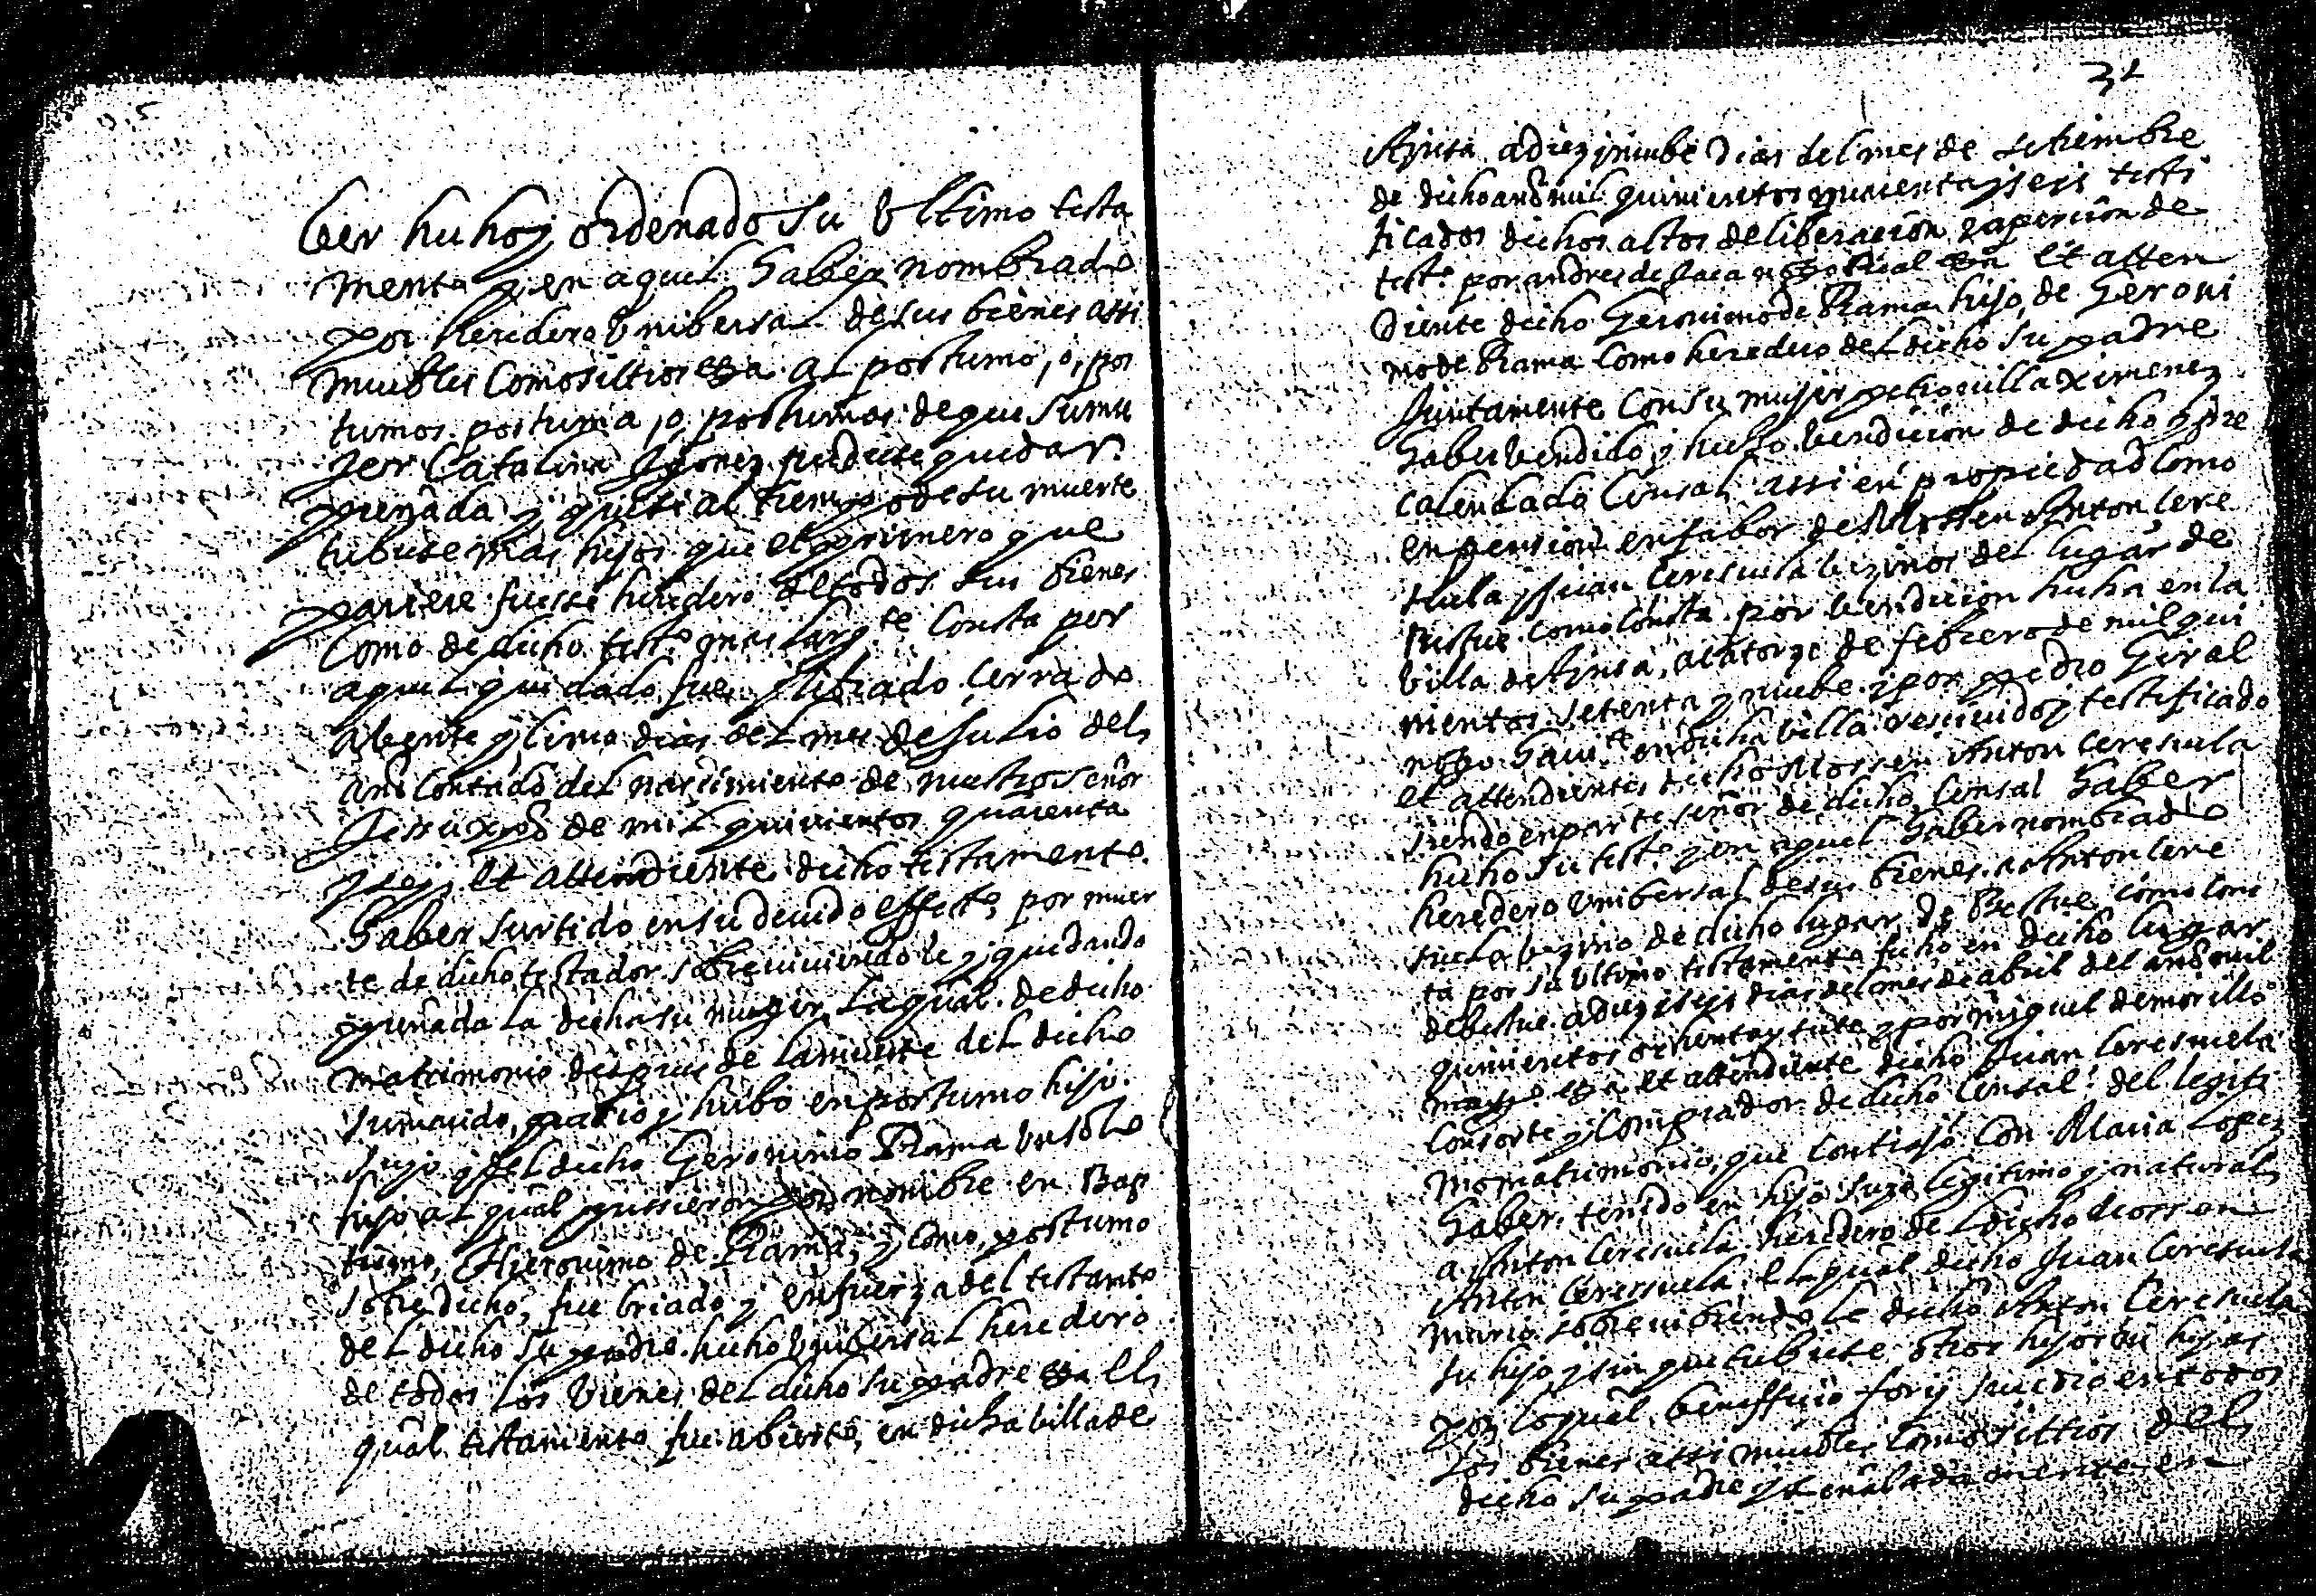 ber hecho y ordenado su ultimo testa
mento y en aquel haber nombrado
por heredero unibersal de sus bienes assi
muebles como sittios etta al postumo, o, pos
tumos postuma, o, postumas de que su mu
jer Catalina pudiese quedar
preñada y que si al tiempo de su muerte
tubiese mas hijos que el primero que
pariese fuesse heredero de todos sus bienes
Como de dicho testº mas largte Consta por
aquel que dado fue y librado cerrado
a beynte y cinco dias del mes de Julio del
año Contado del nascimiento de nuestro señor
Jessuxpo de mil quinientos quarenta
y seys et attendiente dicho testamento
haber surtido en su devido effecto por muer
te de dicho testador sobreviviendole y quedando
preñada la dicha su muger la qual de dicho
matrimonio despues de la muerte del dicho
su marido, pario y hubo en postumo hijo
suyo y del dicho Geronimo Rama un solo
hijo al qual pussieron por nombre en Bap
tismo, Hieronimo de Rama y como postumo
sobredicho, fue criado y en fuerza del testamto
del dicho su padre hecho unibersal heredero
de todos los bienes del dicho su padre etta el
qual testamento fue abierto, en dicha billa de
31
Aynsa a diez y nuebe dias del mes de setiembre
de dicho año mil quinientos quarenta y seys testi
ficados dichos actos de liberacion y apercion de
testº por andres de noto Real etta et atten
diente dicho Geronimo de Rama hijo de Geroni
mo de Rama como heredero del dicho su padre
Juntamente con su mujer petronilla Ximenez
haber bendido y hecho bendicion de dicho y pre
calendado Censal assi en propiedad como
en pension en fabor de Mossen Anton Cere
suela y Juan Ceresuela bezinos del lugar de
Bestue como consta por bendicion hecha en la
billa de Aynsa, a catorze de febrero de mil qui
nientos setenta y nuebe y por pedro Giral
noto havite en dicha billa recivido y testificado
et attendientes dicho Mossen Anton Ceresuela
siendo en parte señor de dicho Censal haber
hecho su testº y en aquel haber nombrado
heredero unibersal de sus bienes a Anton Cere
suela bezino de dicho lugar de Bestue como cons
ta por su ultimo testamento fecho en dicho lugar
de bestue a diez y seys dias del mes de abril del año mil
quinientos ochenta y siete y por miguel de morillo
etta et attendiente dicho Juan Ceresuela
Consorte y Comprador de dicho Censal del legiti
mo matrimonio, que contrajo con Maria Lopez
haber tenido en hijo suyo legitimo y natural
a Anton Ceresuela heredero del dicho Mossen
Anton Ceresuela el qual dicho Juan Ceresuela
murio sobreviviendole dicho Anton Ceresuela
su hijo y sin que tubiese otros hijos ni hijas
por lo qual beneffiçio fory sucedio en todos
los bienes assi muebles como sittios del
dicho su padre y señaladamente en